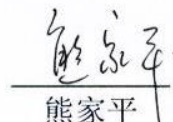 熊家平
熊家平